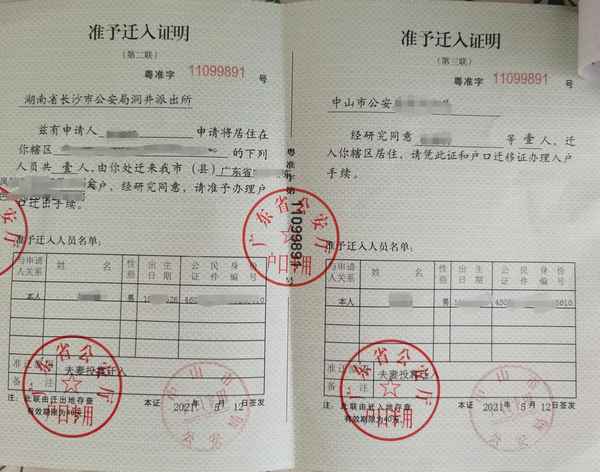 准予迁入证明
（第二联）
粤准字 11099891 号
湖南省长沙市公安局洞井派出所
兹有申请人 申请将居住在
你辖区 的下列
人员共 壹 人，由你处迁来我市（县）广东省
户，经研究同意，请准予办理户
口迁出手续。
准予迁入人员名单：
与申请人关系 姓名 性别 出生日期 公民身份证件编号
本人 男
准迁原 夫妻投靠迁入
备注
注：此联由迁出地存查
有效期限为40天
本证 2021年 5月 12日签发
粤准字第 11099891 号
广东省公安厅
户口专用
准予迁入证明
（第三联）
粤准字 11099891 号
中山市公安
经研究同意 等 壹 人，迁
入你辖区居住，请凭此证和户口迁移证办理入户
手续。
准予迁入人员名单：
与申请人关系 姓名 性别 出生日期 公民身份证件编号
本人 男
夫妻投靠迁入
备注
注：此联由迁入地存查
有效期限为40天
本证 2021年 5月 12日签发
广东省公安厅
户口专用
广东省公安厅
户口专用